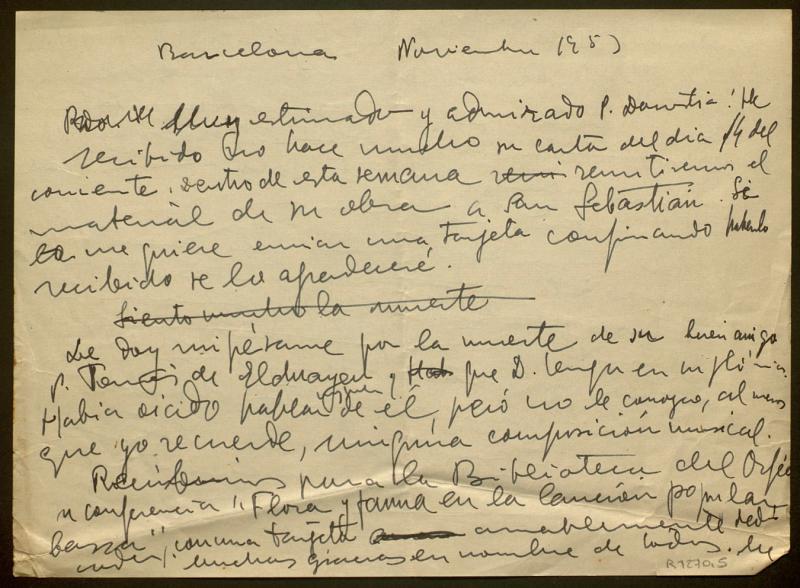 Barcelona Noviembre 1953
Muy estimado y admirado P. Donostia: He
recibido no hace mucho su carta del día 14 del
corriente. Dentro de esta semana remitiremos el
material de su obra a San Sebastián. Si
me quiere enviar una tarjeta confirmando haberlo
recibido se lo agradeceré.
Siento mucho la muerte
Le doy mi pésame por la muerte de su buen amigo
P. de Elduayen y que D. tenga en su gloria.
Había oído hablar de él, pero no le conozco, al menos
que yo recuerde, ninguna composición musical.
Recibimos para la Biblioteca del Orfeó
su conferencia "Flora y fauna en la canción popular
vasca", con una tarjeta amablemente dedi-
muchas gracias en nombre de todos. He
R.1270.5